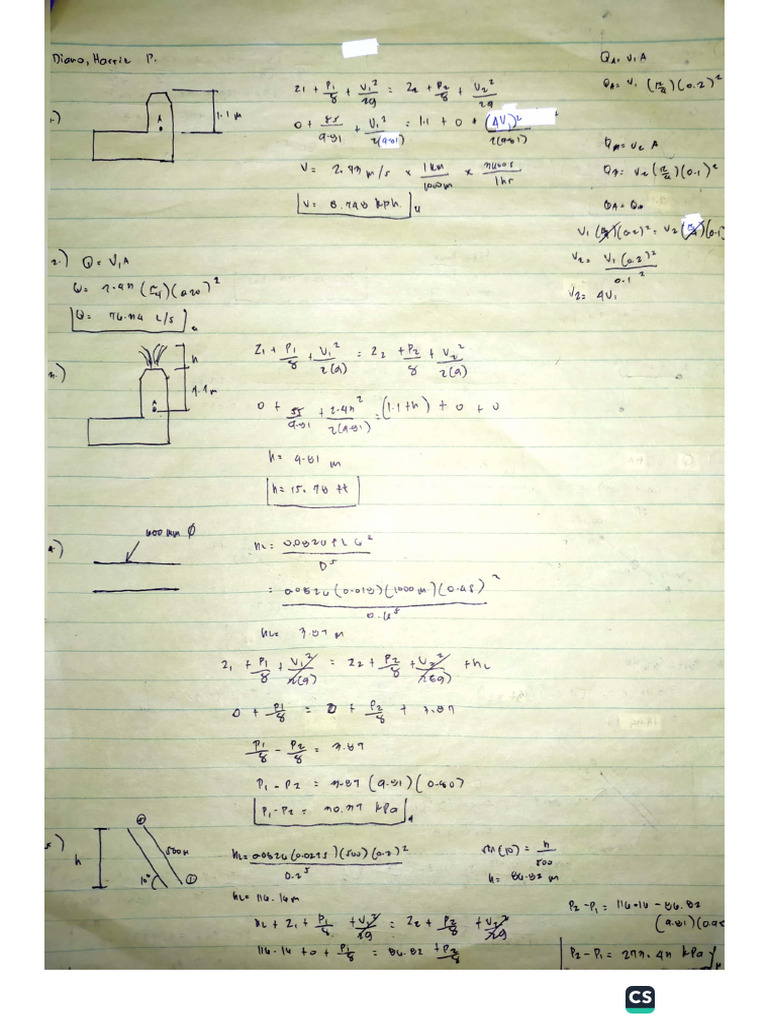 Diano, Harriz P.
1.)
A
1.1 m
Z1 + P1/8 + V1²/2g = Z2 + P2/8 + V2²/2g
0 + 55/9.81 + V1²/2(9.81) = 1.1 + 0 + (4V1)²/2(9.81)
V = 2.43 m/s × 1km/1000m × 3600s/1hr
V = 8.748 kph
QA = V1 A
QA = V1 (π/4)(0.2)²
QB = V2 A
QB = V2 (π/4)(0.1)²
QA = QB
V1 (π/4)(0.2)² = V2 (π/4)(0.1
V2 = V1 (0.2)²/0.1²
V2 = 4V1
2.) Q = V1A
Q = 2.43 (π/4)(0.20)²
Q = 76.34 L/s
3.)
h
1.1 m
A
Z1 + P1/8 + V1²/2(g) = Z2 + P2/8 + V2²/2(g)
0 + 55/9.81 + 2.43²/2(9.81) = (1.1 + h) + 0 + 0
h = 4.81 m
h = 15.78 ft
4.)
600 mm Ø
hL = 0.0826 f L Q²/D⁵
= 0.0826 (0.018)(1000 m)(0.45)²/0.6⁵
hL = 3.87 m
Z1 + P1/8 + V1²/2(g) = Z2 + P2/8 + V2²/2(g) + hL
0 + P1/8 = 0 + P2/8 + 3.87
P1/8 - P2/8 = 3.87
P1 - P2 = 3.87 (9.81)(0.80)
P1 - P2 = 30.37 kPa
5.)
h
500m
10°
hL = 0.0826 (0.0225)(500)(0.2)²/0.2⁵
hL = 116.16 m
sin(10) = h/500
h = 86.82 m
hL + Z1 + P1/8 + V1²/2g = Z2 + P2/8 + V2²/2g
116.16 + 0 + P1/8 = 86.82 + P2/8
P2 - P1 = 116.16 - 86.82
(9.81)(0.9
P2 - P1 = 273.43 kPa
CS